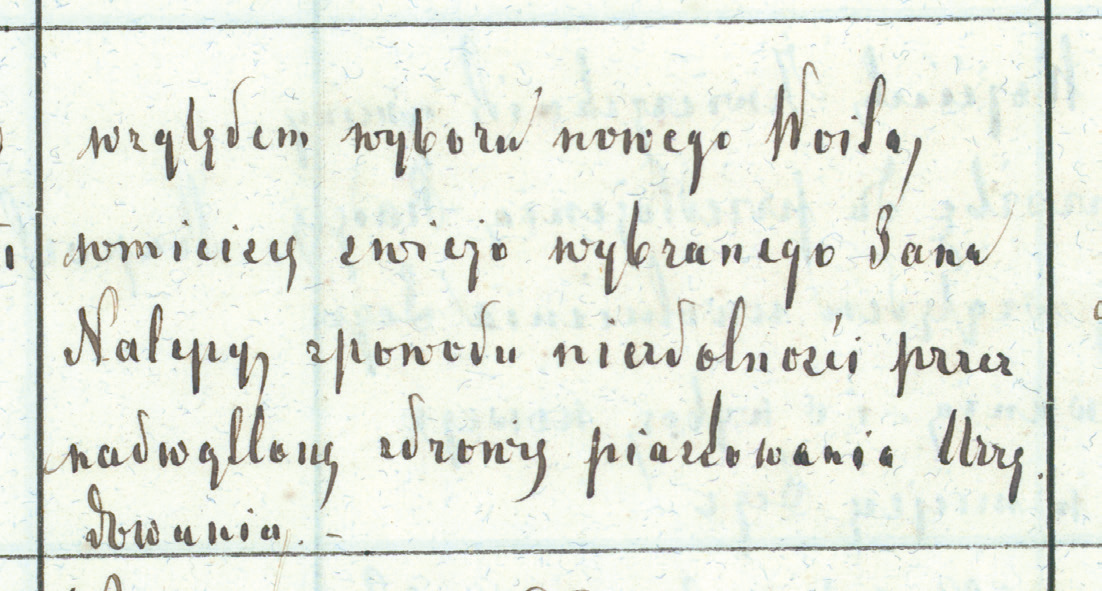 względem wyboru nowego Woita,
wmieiscy zwiezo wybranego Jana
Nalepy, zpowodu niezdolności przez
nadwątlony zdrowiy piastowania Urzy
dowania. –